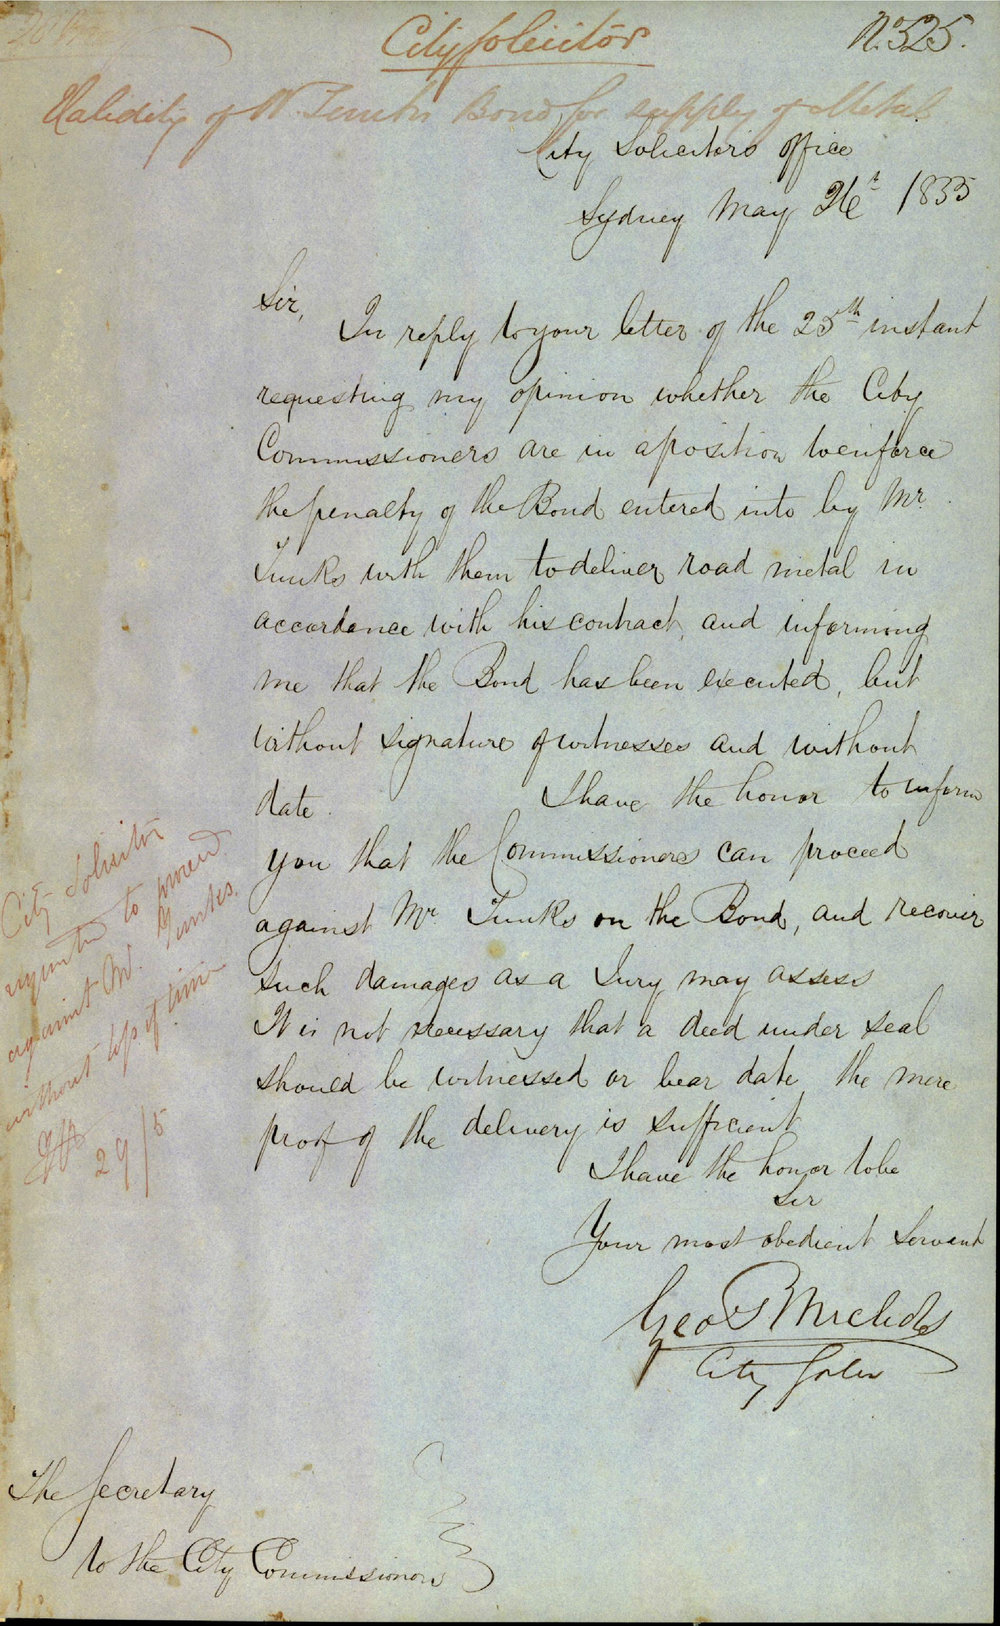 City Solicitor
No 525.
Validity of Mr Jenks Bond for supply of Metal
City Solicitors office
Sydney May 26t 1855
Sir,
In reply to your letter of the 25th instant
requesting my opinion whether the City
Commissioners are in a position to enforce
the penalty of the Bond entered into by Mr.
with them to deliver road metal in
accordance with his contract, and informing
me that the Bond has been executed, but
without signature of witnesses and without
date. I have the honor to inform
you that the Commissioners can proceed
against Mr on the Bond, and recover
such damages as a Jury may assess
It is not necessary that a deed under seal
should be witnessed or bear date the mere
proof of the delivery is sufficient
I have the honor to be
Sir
Your most obedient Servant
Geo
City Solr
City Solicitor
to proceed
against Mr.
without loss of time
29/5
The Secretary
to the City Commissioners